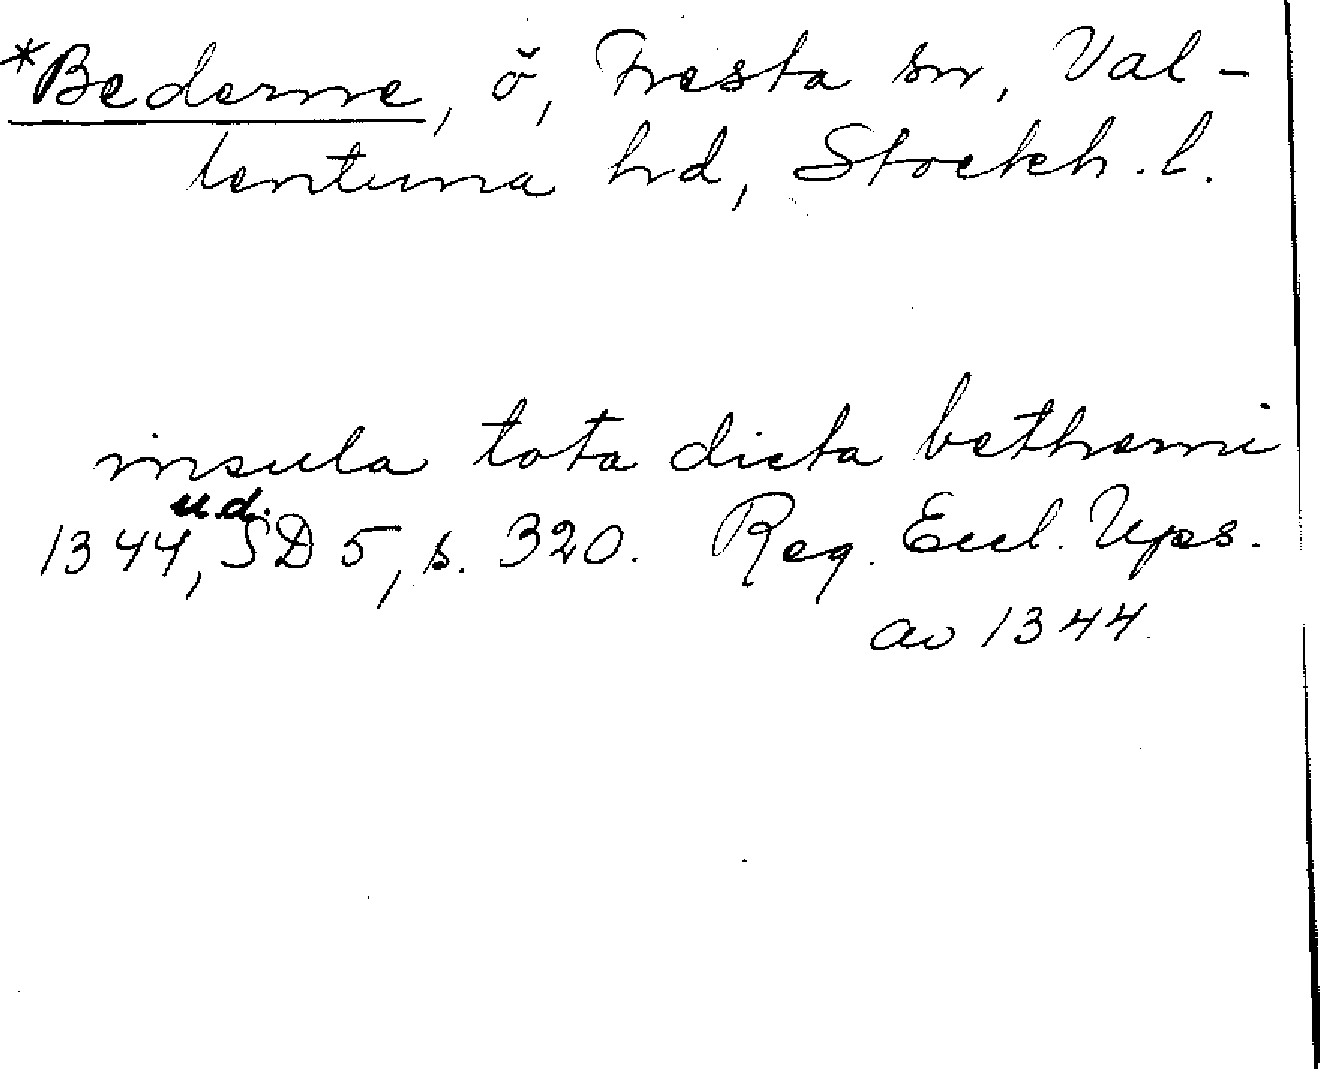 *Bederne, ö, Fresta sn, Val-
lentuna hd, Stockh. l.
insula tota dicta betherni
1344, u.d. SD 5, s. 320. Reg. Eccl. Ups.
av 1344